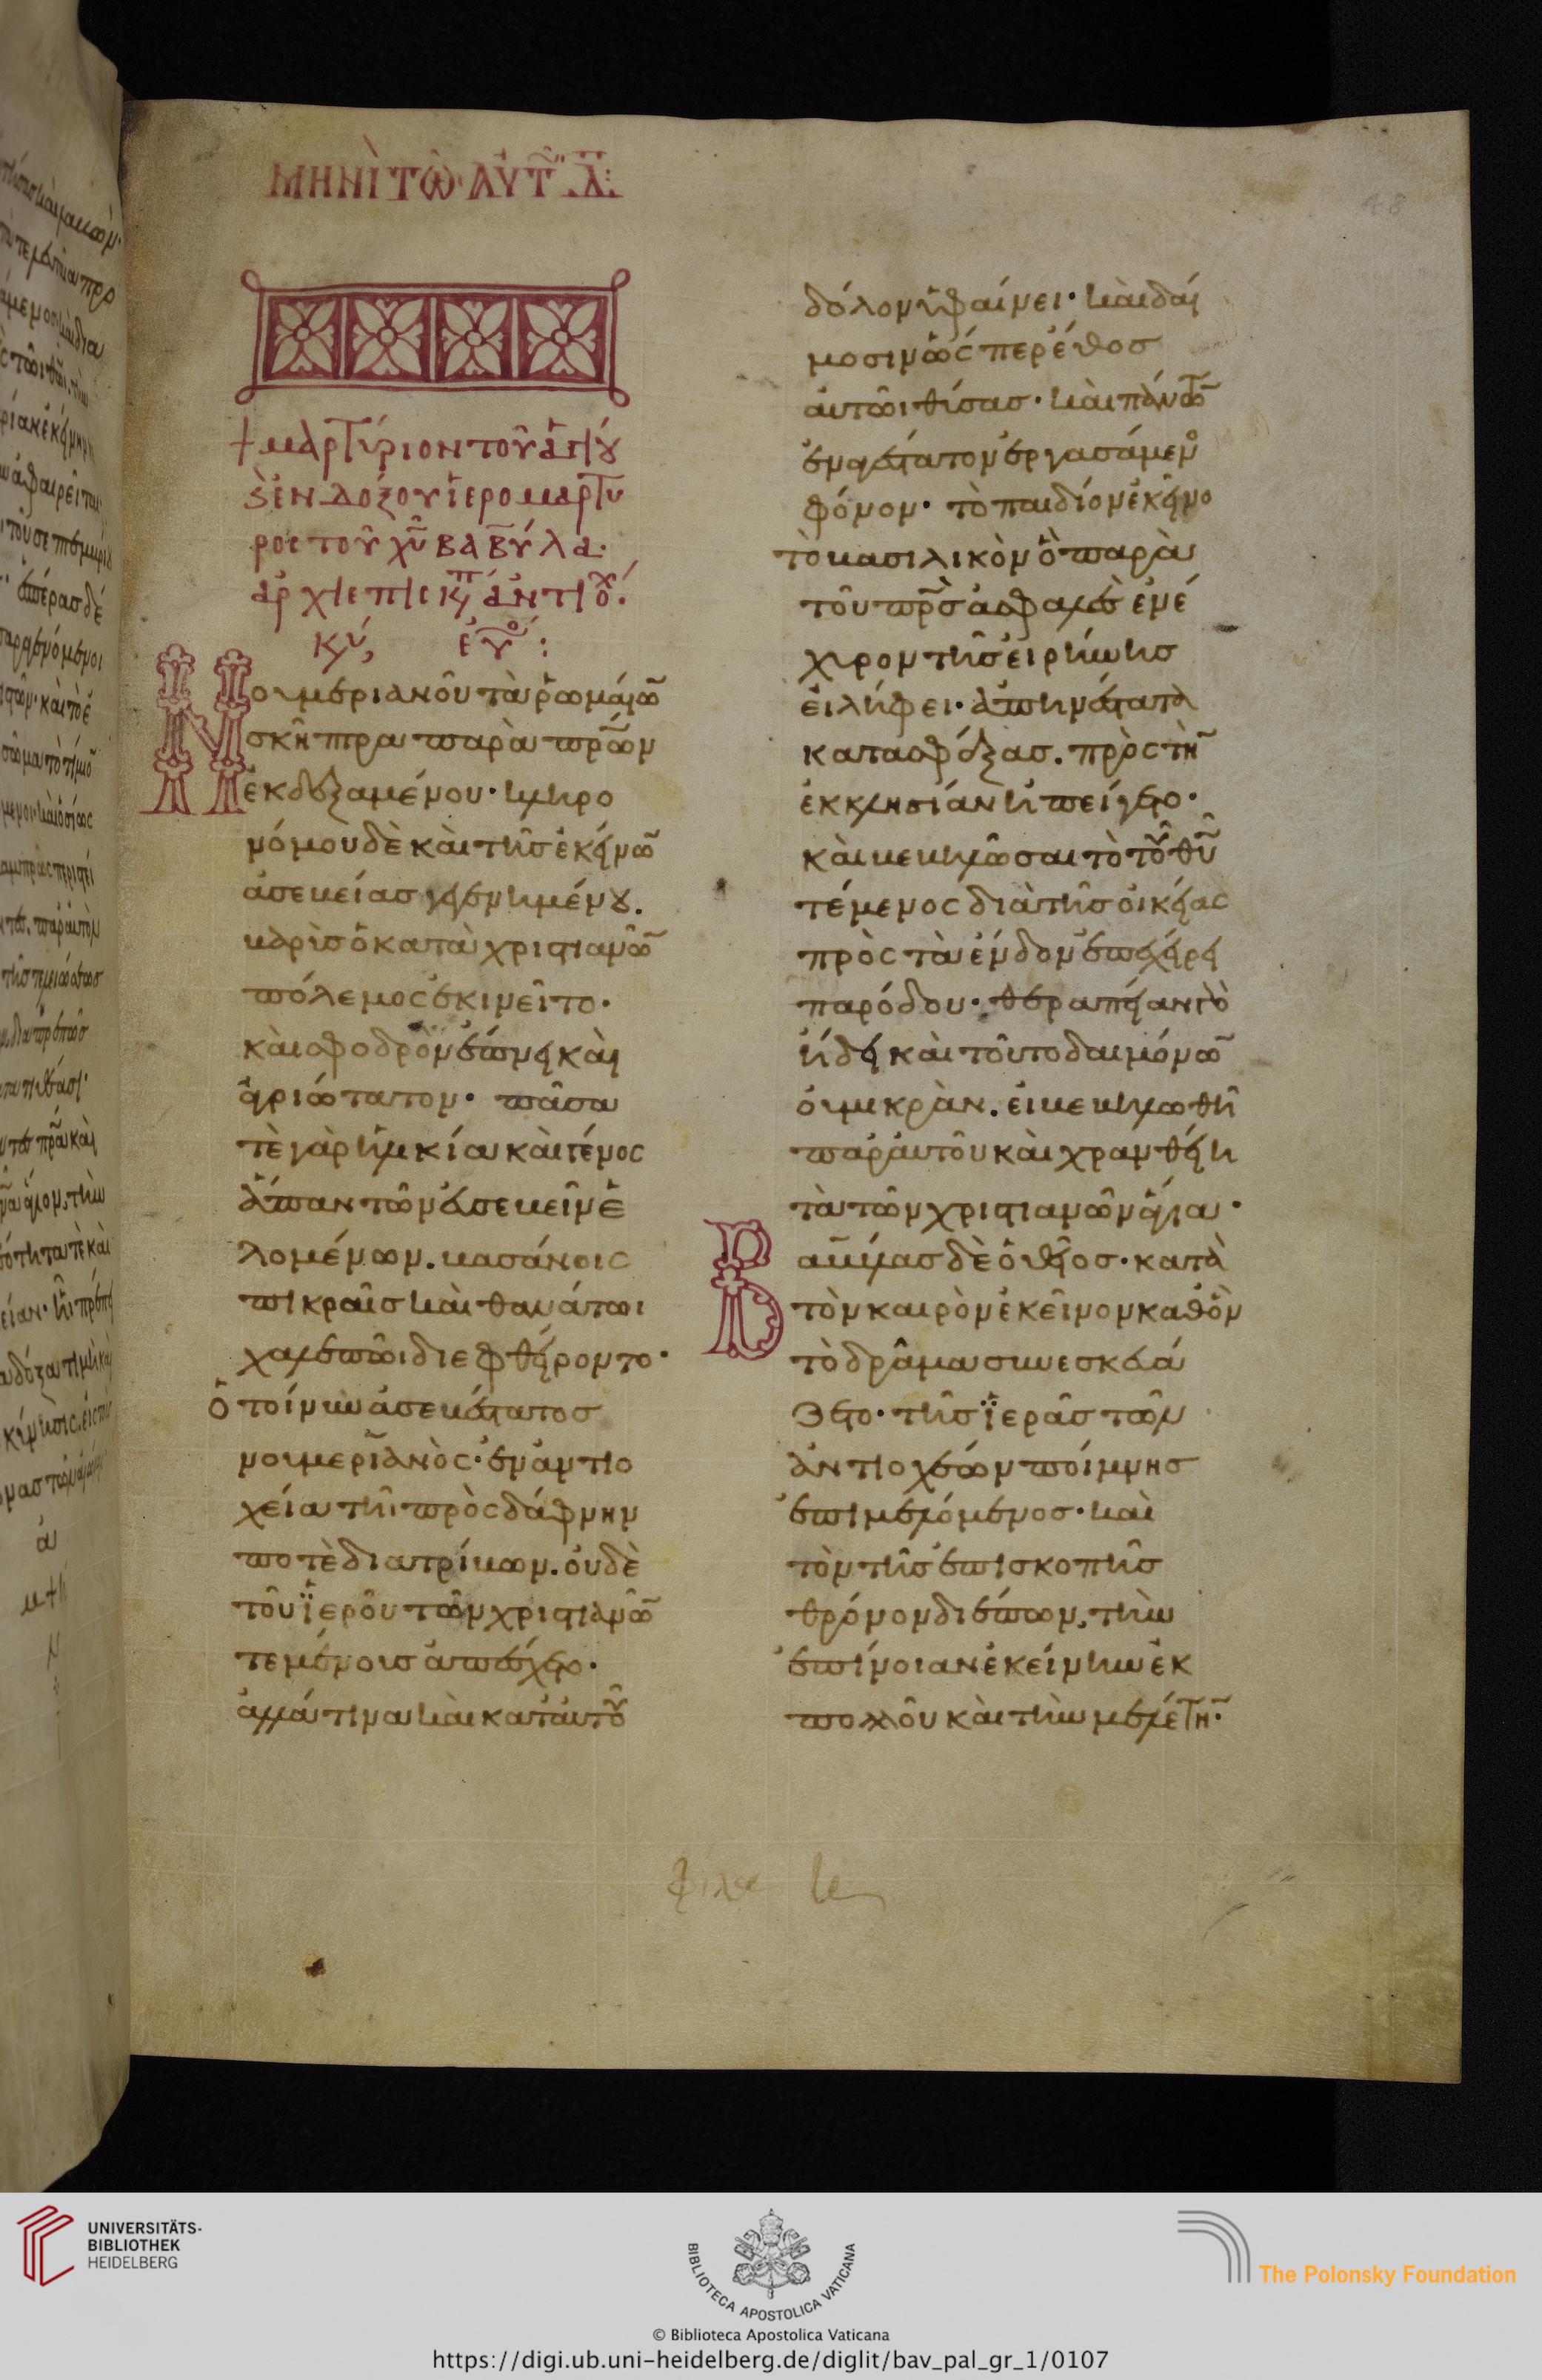 ΜΗΝῚ ΤΩ͂ ΑΥΤ͂ Δ̄:
+ μαρτύριον τοῦ ἁγίου
ς ἐνδόξου ἱερομαρτυ
ρος τοῦ χῦ βαβύλα·
ἀρχιεπισκπ ἀντιοχ·
κύ, εὐ :
Νουμεριανοῦ τὰ ῥωμαίω
σκῆπτρα παρὰ πρῶν
ἐκδεξαμένου· κληρο
νόμου δὲ καὶ τῆς ἐκείνω
ἀσεβείας γεγενημένου.
βαρὺς ὁ κατὰ χριστιανῶ
πόλεμος ἐκινεῖτο·
καὶ σφοδρὸν ἔπνει καὶ
ἀγριώτατον· πᾶσα
τὲ γὰρ ἡλικία καὶ γένος
ἅπαν τῶν εὐσεβεῖν ἑ
λομένων. βασάνοις
πικραῖς καὶ θανάτωι
χαλεπῶι διεφθείροντο·
ὅ τοίνυν ἀσεβέστατος
νουμεριανὸς· ἐν ἀντιο
χεία τῆ πρὸς δάφνην
ποτὲ διατρίβων. οὐδὲ
τοῦ ἱεροῦ τῶν χριστιανῶ
τεμένους ἀπέσχετο·
ἀλλά τινα καὶ κατ' αὐτοῦ
δόλον ὑφαίνει· καὶ δαί
μοσιν ὥσπερ ἔθος
αὐτῶι θύσας· καὶ πάντω
ἐναγέστατον ἐργασάμενο
φόνον· τὸ παιδίον ἐκεῖνο
τὸ βασιλικὸν ὃ παρὰ
τοῦ πρς ἀσφαλὲς ἐνέ
χυρον τῆς εἰρήνης
εἰλήφει· ἀπηνέστατα
κατασφάξας. πρὸς τὴ
ἐκκλησίαν ἠπείγετο·
καὶ βεβηλῶσαι τὸ τοῦ θῦ
τέμενος διὰ τῆς οἰκείας
πρὸς τὰ ἔνδον ἐπεχείρει
παρόδου· θεραπείαν γὸ
ᾔδει καὶ τοῦτο δαιμόνω
οὐ μικρὰν. εἰ βεβηλωθῆ
παρ' αὐτοῦ καὶ χρανθείη
τὰ τῶν χριστιανῶν ἅγια·
Βαβύλας δὲ ὁ θεῖος· κατὰ
τὸν καιρὸν ἐκεῖνον καθ' ὃν
τὸ δρᾶμα συνεσκευά
ζετο· τῆς ἱερᾶς τῶν
ἀντιοχέων ποίμνης
ἐπιμελόμενος· καὶ
τὸν τῆς ἐπισκοπῆς
θρόνον διέπων, τὴν
ἐπίνοιαν ἐκείνην ἐκ
πολλοῦ καὶ τὴν μελέτη·
48
UNIVERSITÄTS-
BIBLIOTHEK
HEIDELBERG
BIBLIOTECA APOSTOLICA VATICANA
The Polonsky Foundation
© Biblioteca Apostolica Vaticana
https://digi.ub.uni-heidelberg.de/diglit/bav_pal_gr_1/0107